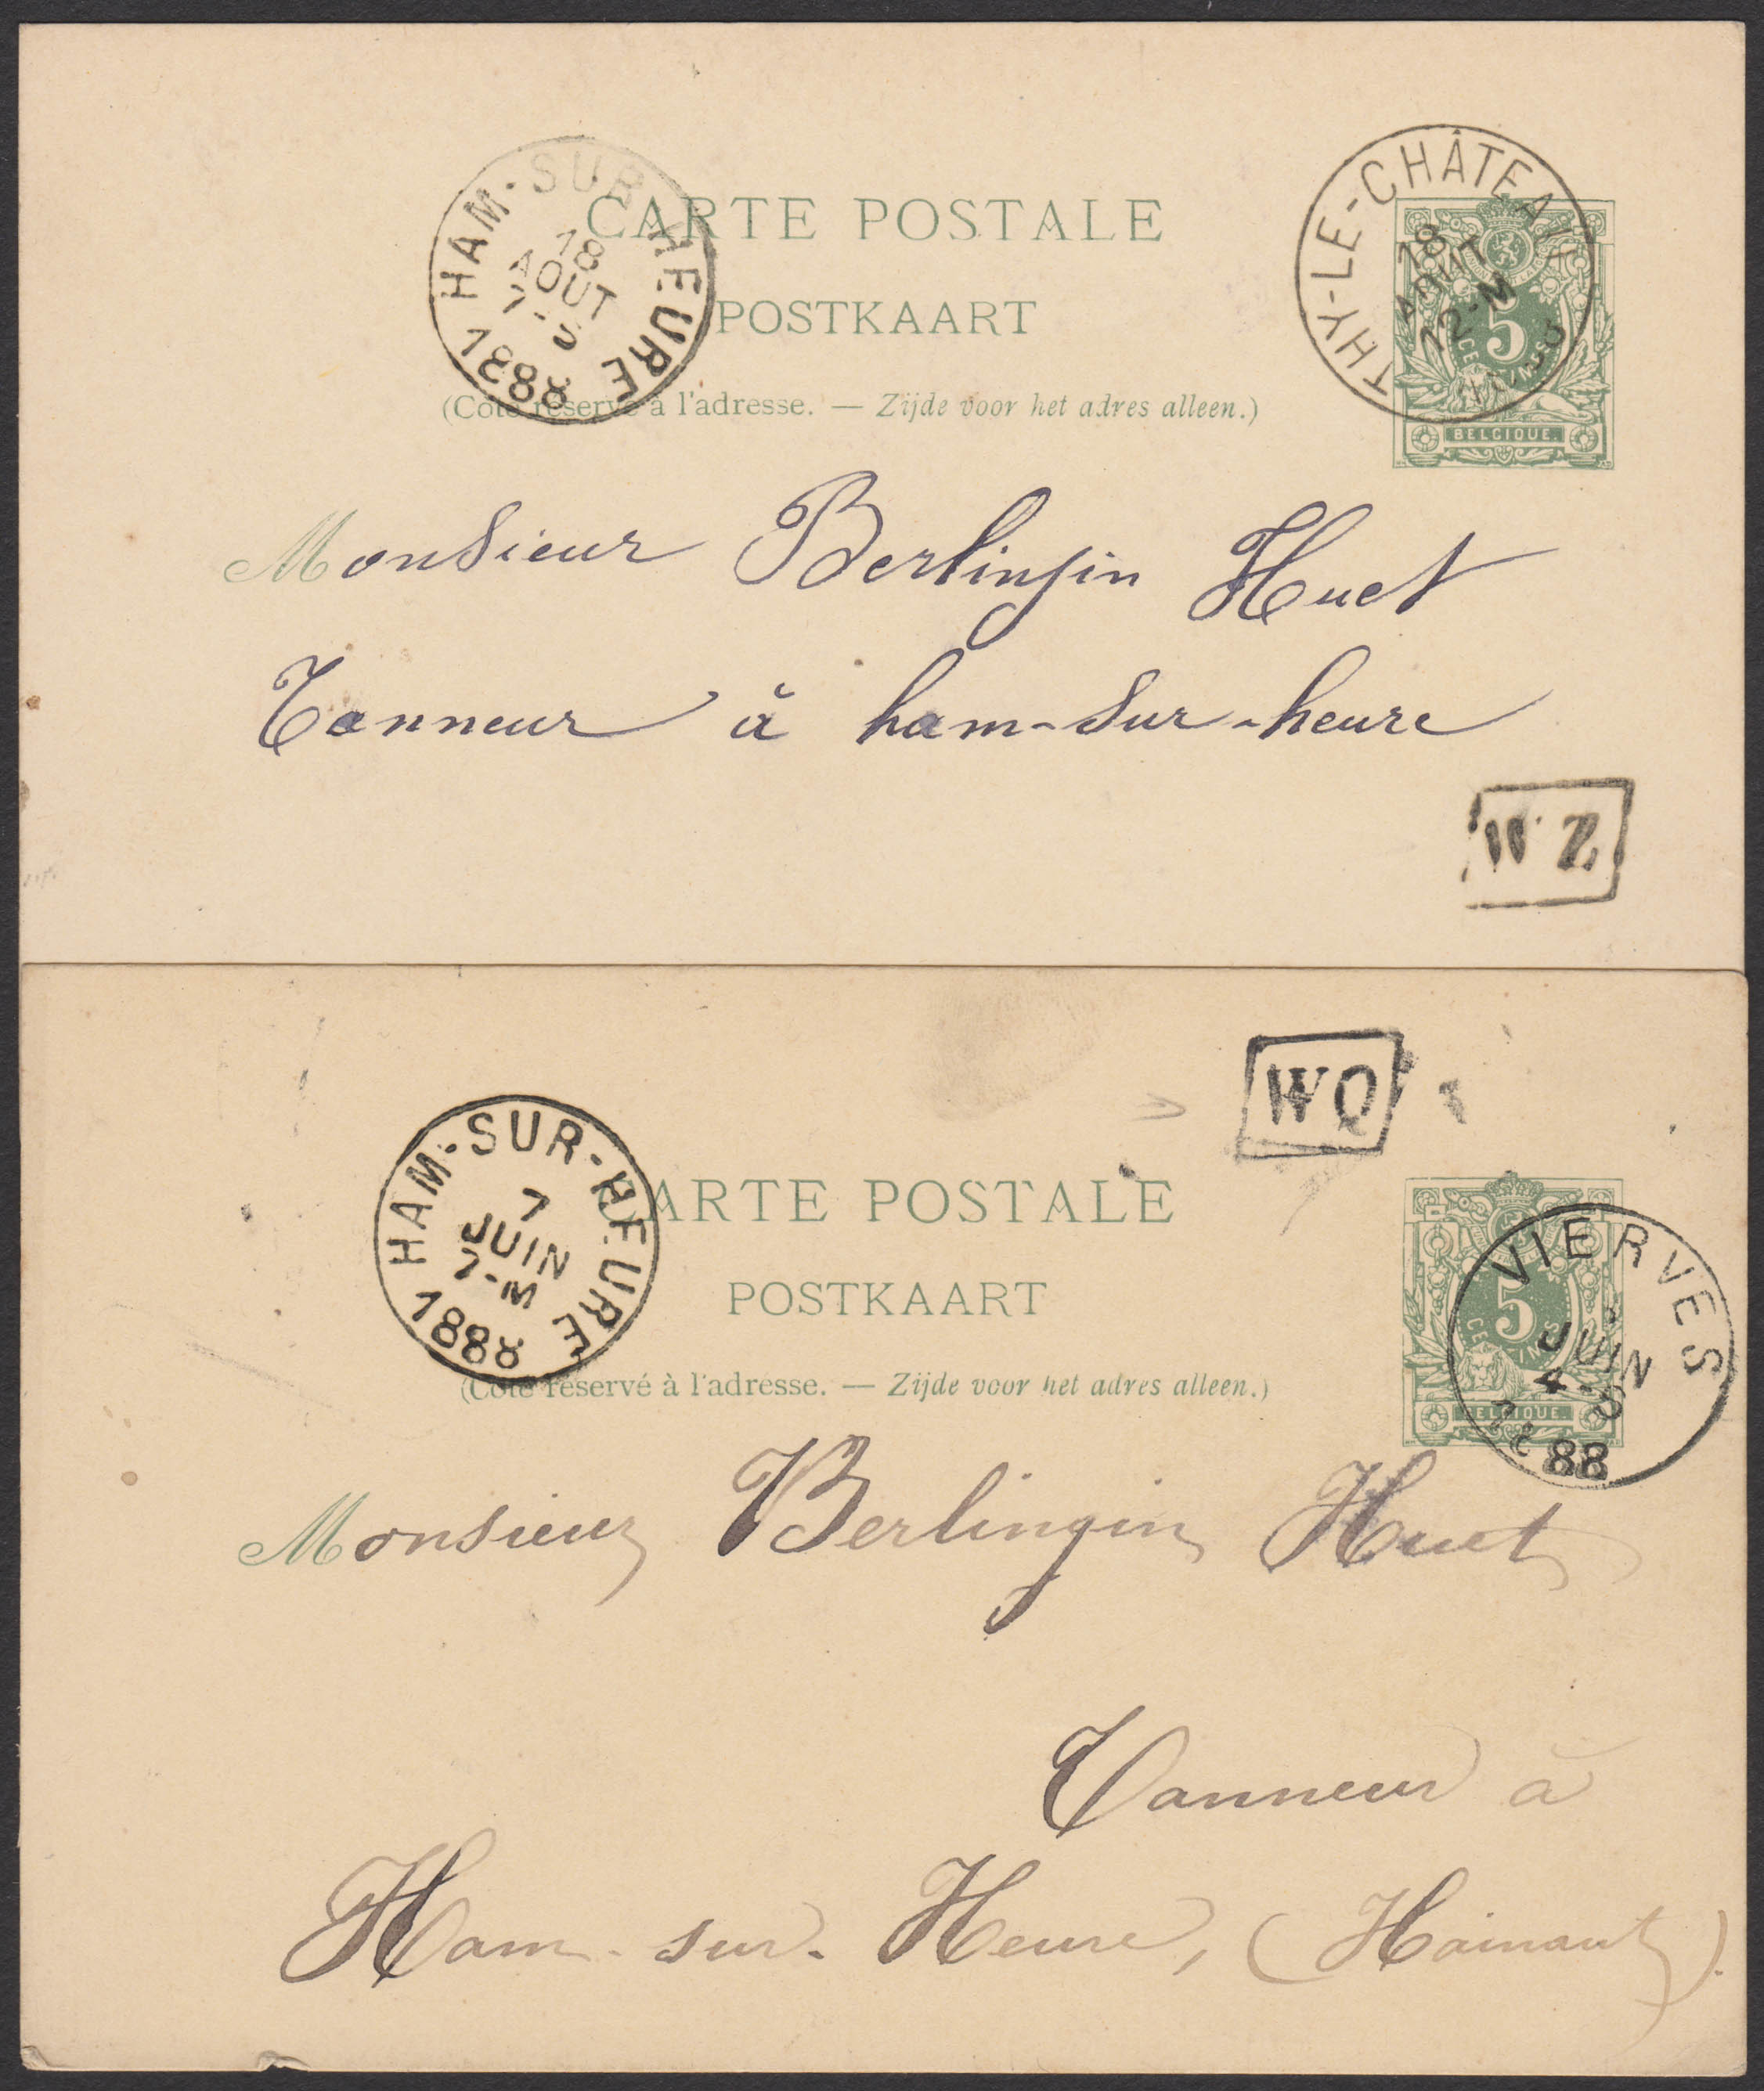 HAM-SUR-HEURE
18
AOUT
7-S
1888
THY-LE-CHÂTEAU
18
AOUT
12-M
CARTE POSTALE
POSTKAART
(Côté réservé à l'adresse. — Zijde voor het adres alleen.)
5
CENTIMES
BELGIQUE.
Monsieur Berlingin Huet
Tanneur à ham-sur-heure
WZ
WQ
HAM-SUR-HEURE
7
JUIN
7-M
1888
CARTE POSTALE
POSTKAART
(Côté réservé à l'adresse. — Zijde voor het adres alleen.)
5
CENTIMES
BELGIQUE.
VIERVES
JUIN
4-S
1888
Monsieur Berlingin Huet
Tanneur à
Ham-sur-Heure, (Hainaut).